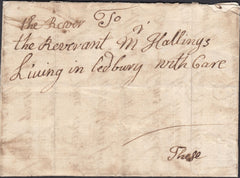 the Rever To
the Reverant Mr Hallings
Living in Ledbury with Care
These